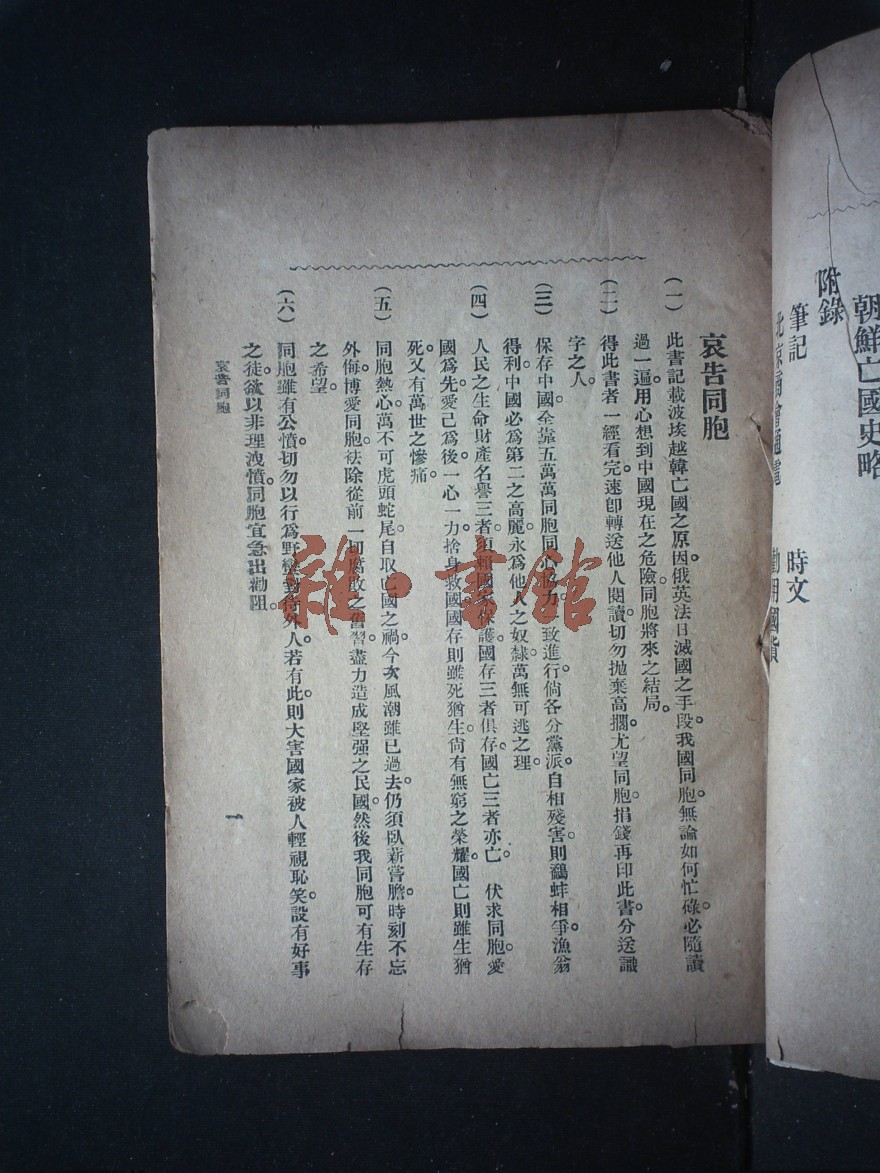 朝鮮亡國史略
附錄
筆記
時文
北京商會通電
勸用國貨
哀告同胞
(一) 此書記載波埃越韓亡國之原因俄英法日滅國之手段。我國同胞。無論如何忙碌。必隨讀
過一遍。用心想到中國現在之危險。同胞將來之結局。
(二) 得此書者一經看完。速卽轉送他人閱讀。切勿拋棄高擱。尤望同胞。捐錢再印此書。分送識
字之人。
(三) 保存中國。全靠五萬萬同胞。同心協力。一致進行。倘各分黨派。自相殘害。則鷸蚌相爭。漁翁
得利。中國必爲第二之高麗。永爲他人之奴隸。萬無可逃之理。
(四) 人民之生命財產名譽三者。須賴國家保護。國存三者俱存。國亡三者亦亡。伏求同胞。愛
國爲先。愛己爲後。一心一力。捨身救國。國存則雖死猶生。尙有無窮之榮耀。國亡則雖生猶
死。又有萬世之慘痛。
(五) 同胞熱心。萬不可虎頭蛇尾。自取亡國之禍。今次風潮雖已過去。仍須臥薪嘗膽。時刻不忘
外侮。博愛同胞。袪除從前一切腐敗之舊習。盡力造成堅强之民國。然後我同胞可有生存
之希望。
(六) 同胞雖有公憤。切勿以行爲野蠻。對待外人。若有此。則大害國家。被人輕視恥笑。設有好事
之徒。欲以非理洩憤。同胞宜急出勸阻。
哀告同胞
一
雜·書館